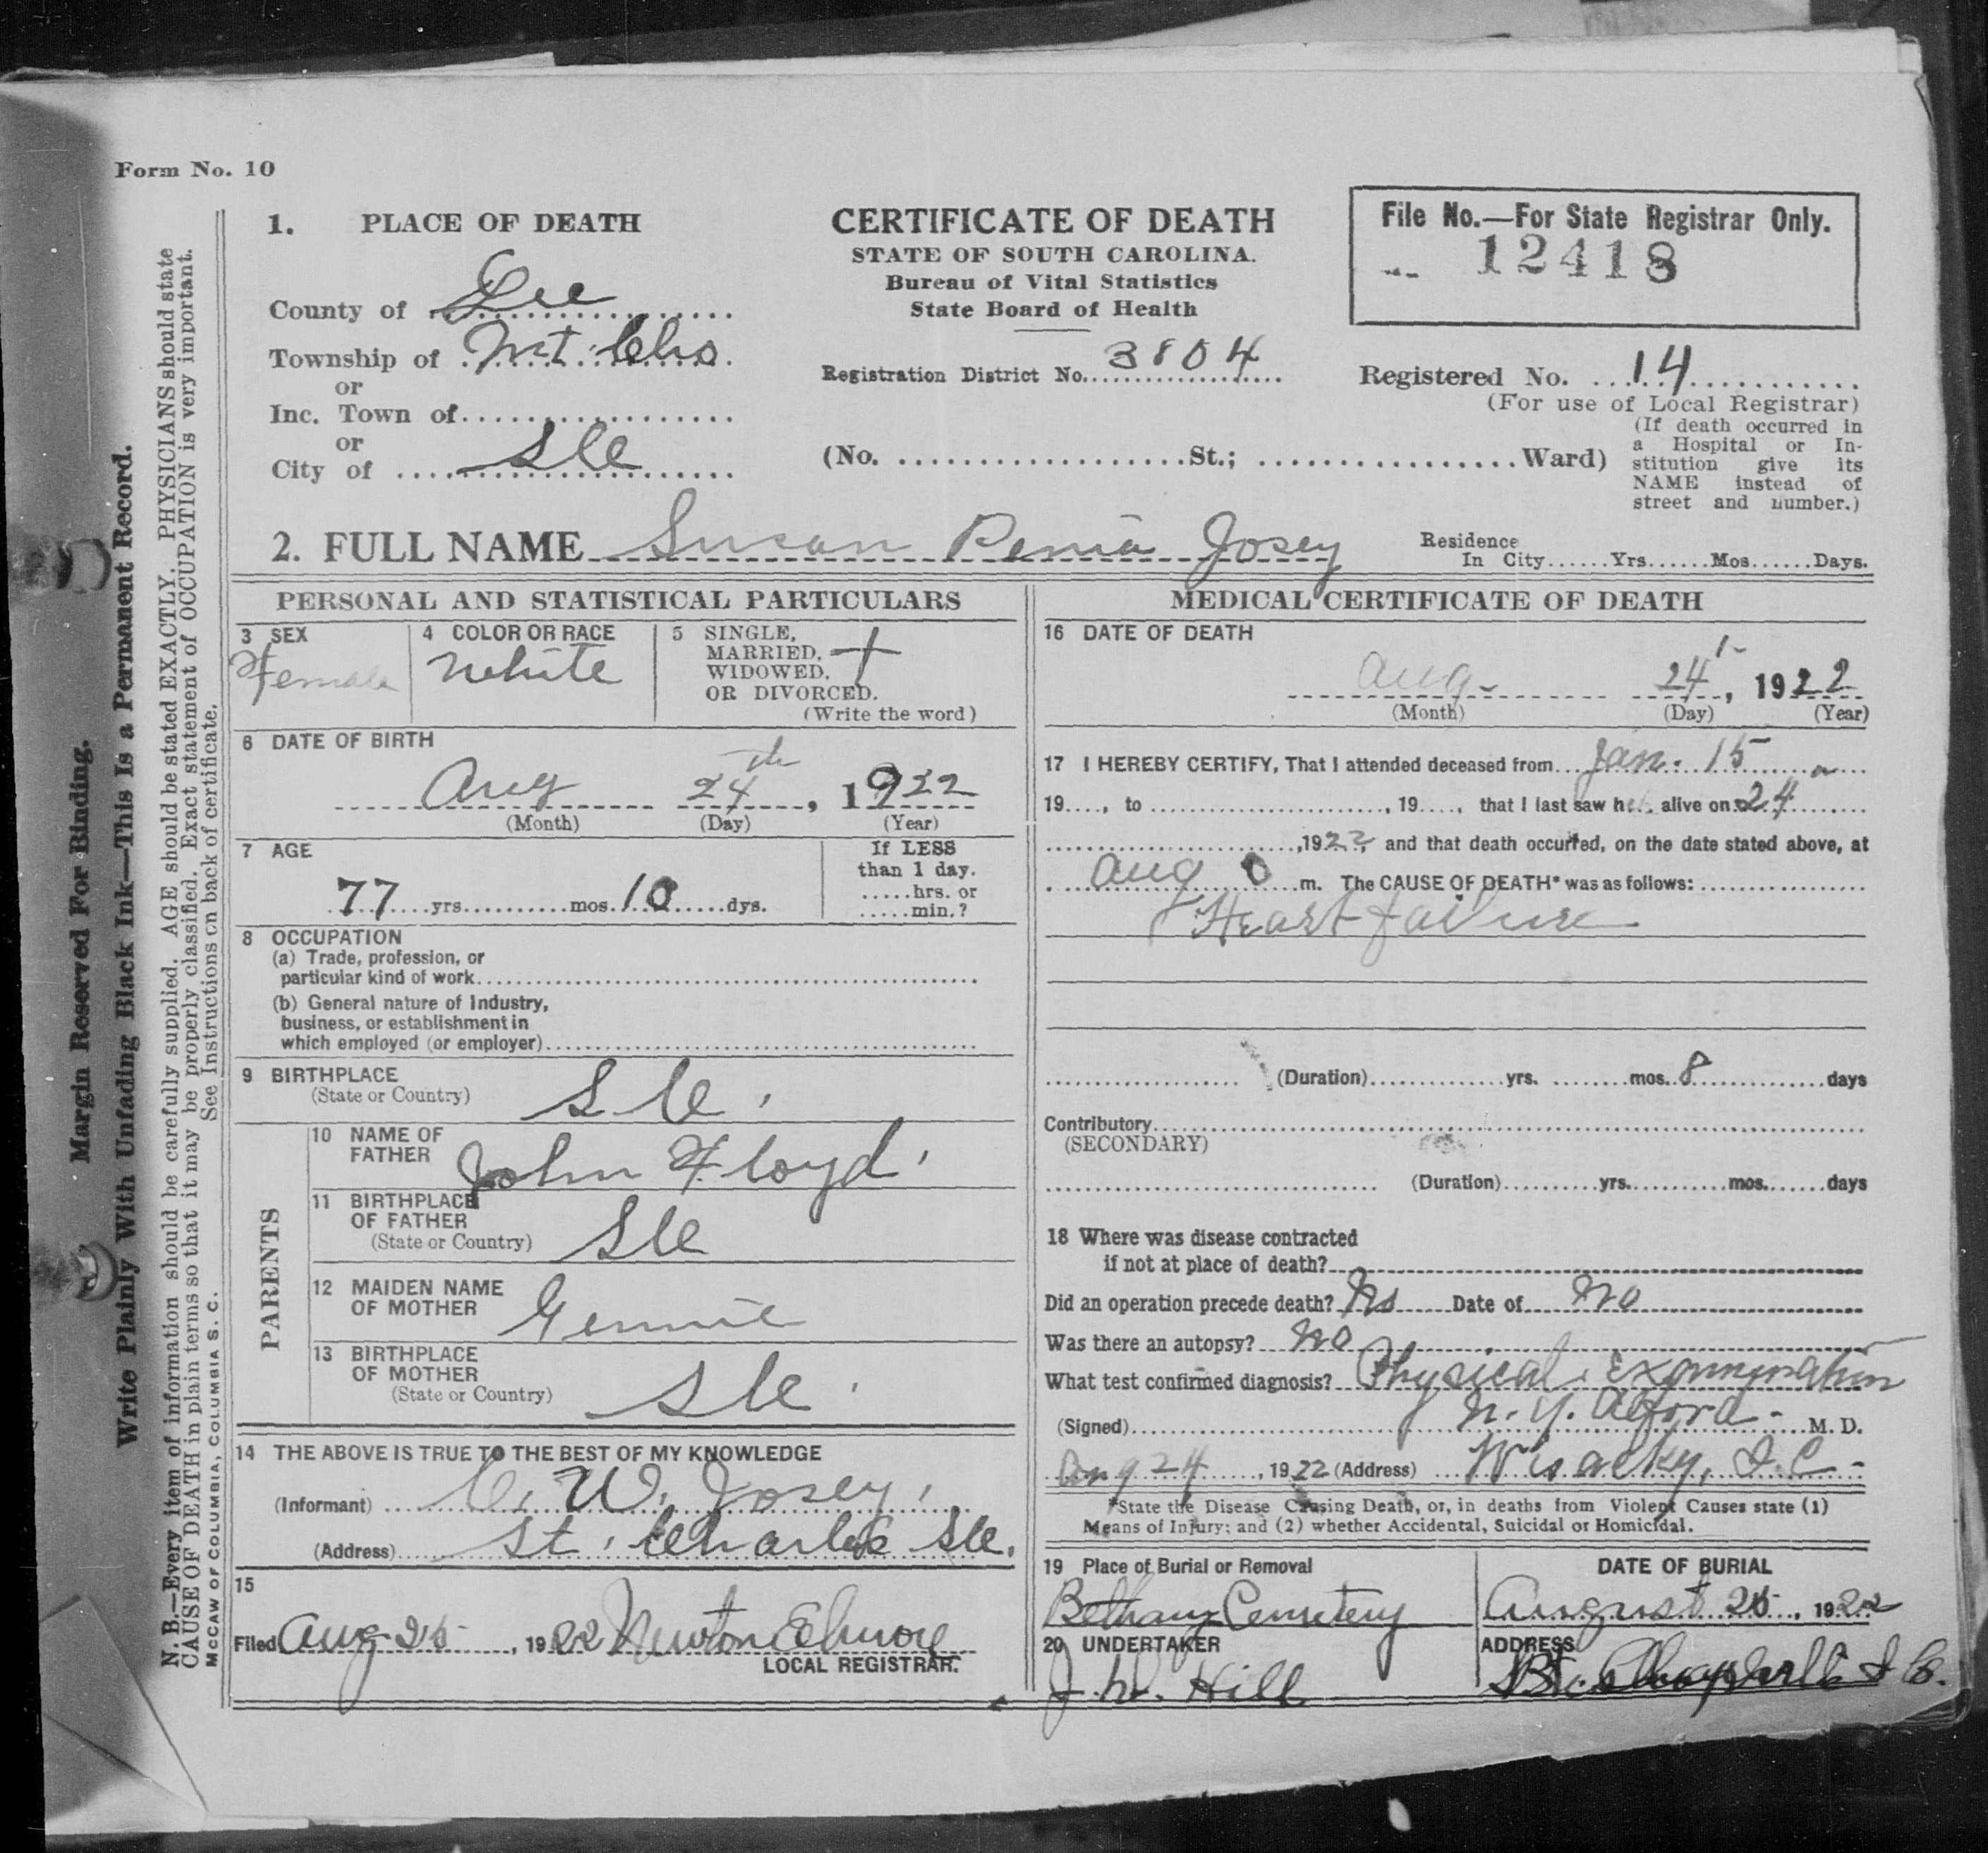 Form No. 10
1. PLACE OF DEATH
County of Lee
Township of Mt. Clio
or
Inc. Town of
or
City of S C
CERTIFICATE OF DEATH
STATE OF SOUTH CAROLINA.
Bureau of Vital Statistics
State Board of Health
Registration District No. 3804
(No. St.; Ward)
File No.—For State Registrar Only.
12418
Registered No. 14
(For use of Local Registrar)
(If death occurred in
a Hospital or In-
stitution give its
NAME instead of
street and number.)
2. FULL NAME Susan Josey
Residence
In City Yrs. Mos. Days.
PERSONAL AND STATISTICAL PARTICULARS
3 SEX
Female
4 COLOR OR RACE
White
5 SINGLE,
MARRIED, +
WIDOWED,
OR DIVORCED.
(Write the word)
6 DATE OF BIRTH
Aug 24th, 1922
(Month) (Day) (Year)
7 AGE
77 yrs. mos. 10 dys.
If LESS
than 1 day.
hrs. or
min.?
8 OCCUPATION
(a) Trade, profession, or
particular kind of work
(b) General nature of Industry,
business, or establishment in
which employed (or employer)
9 BIRTHPLACE
(State or Country) S C.
PARENTS
10 NAME OF
FATHER John Floyd.
11 BIRTHPLACE
OF FATHER
(State or Country) S C
12 MAIDEN NAME
OF MOTHER Gennie
13 BIRTHPLACE
OF MOTHER
(State or Country) S C.
14 THE ABOVE IS TRUE TO THE BEST OF MY KNOWLEDGE
(Informant) C. W. Josey.
(Address) St. Charles S C.
15
Filed Aug 25, 1922 Newton
LOCAL REGISTRAR.
MEDICAL CERTIFICATE OF DEATH
16 DATE OF DEATH
Aug. 24, 1922
(Month) (Day) (Year)
17 I HEREBY CERTIFY, That I attended deceased from Jan. 15
19, to , 19, that I last saw her alive on 24
, 1922, and that death occurred, on the date stated above, at
Aug m. The CAUSE OF DEATH* was as follows:
Heart failure
(Duration) yrs. mos. 8 days
Contributory
(SECONDARY)
(Duration) yrs. mos. days
18 Where was disease contracted
if not at place of death?
Did an operation precede death? No Date of No
Was there an autopsy? No
What test confirmed diagnosis? Physical Examination
(Signed) N. Y. Alford. M. D.
Aug 24, 1922 (Address) Wisacky, S. C.
*State the Disease Causing Death, or, in deaths from Violent Causes state (1)
Means of Injury; and (2) whether Accidental, Suicidal or Homicidal.
19 Place of Burial or Removal
Bethany Cemetery
DATE OF BURIAL
August 25, 1922
20 UNDERTAKER
J. W. Hill
ADDRESS
Margin Reserved For Binding.
Write Plainly With Unfading Black Ink—This Is a Permanent Record.
N. B.—Every item of information should be carefully supplied. AGE should be stated EXACTLY. PHYSICIANS should state
CAUSE OF DEATH in plain terms so that it may be properly classified. Exact statement of OCCUPATION is very important.
See Instructions on back of certificate.
McCAW OF COLUMBIA, COLUMBIA S. C.